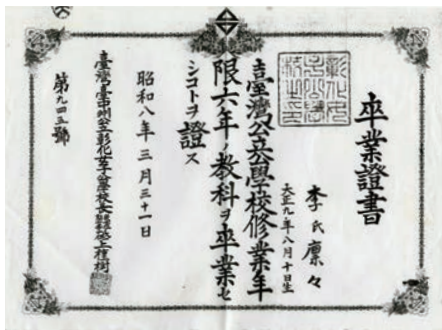 卒業證書
李氏廩々
大正九年八月十日生
臺灣公立公學校修業年
限六年ノ教科ヲ卒業セ
シコトヲ證ス
昭和八年三月三十一日
臺灣臺中州公立彰化女子公學校長
第九四五號